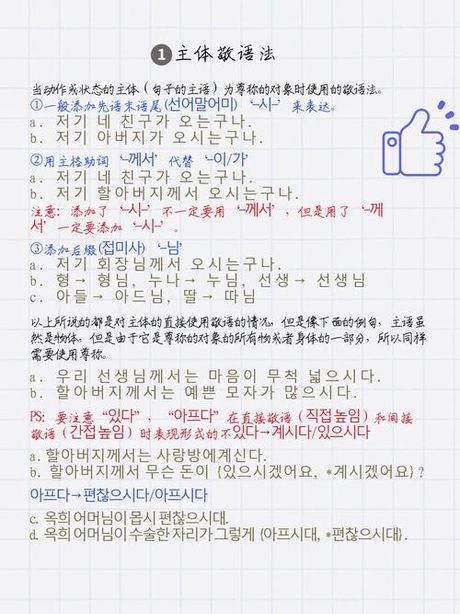 1 主体敬语法
当动作或状态的主体（句子的主语）为尊称的对象时使用的敬语法。
①一般添加先语末语尾(선어말어미)‘-시-’来表达。
a. 저기 네 친구가 오는구나.
b. 저기 아버지가 오시는구나.
②用主格助词‘-께서’代替‘-이/가’
a. 저기 네 친구가 오는구나.
b. 저기 할아버지께서 오시는구나.
注意：添加了‘-시-’不一定要用‘-께서’，但是用了‘-께
서’一定要添加‘-시-’。
③添加后缀(접미사)‘-님’
a. 저기 회장님께서 오시는구나.
b. 형→ 형님, 누나→ 누님, 선생→ 선생님
c. 아들→ 아드님, 딸→ 따님
以上所说的都是对主体的直接使用敬语的情况，但是像下面的例句，主语虽
然是物体，但是由于它是尊称的对象的所有物或者身体的一部分，所以同样
需要使用尊称。
a. 우리 선생님께서는 마음이 무척 넓으시다.
b. 할아버지께서는 예쁜 모자가 많으시다.
PS: 要注意“있다”，“아프다”在直接敬语(직접높임)和间接
敬语(간접높임)时表现形式的不있다→계시다/있으시다
a. 할아버지께서는 사랑방에계신다.
b. 할아버지께서 무슨 돈이 {있으시겠어요, *계시겠어요}?
아프다→편찮으시다/아프시다
c. 옥희 어머님이 몹시 편찮으시대.
d. 옥희 어머님이 수술한 자리가 그렇게 {아프시대, *편찮으시대}.